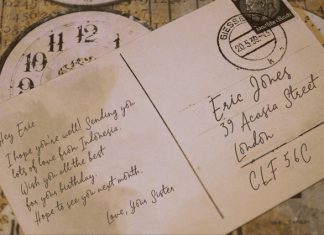 11 12 1
10
9
Hey Eric
I hope you're well! Sending you
lots of love from Indonesia.
Wish you all the best
for your birthday.
Hope to see you next month.
Love, your Sister
GIESSEN
Deutsches Reich
Eric Jones
39 Acasia Street
London
CLF 56C